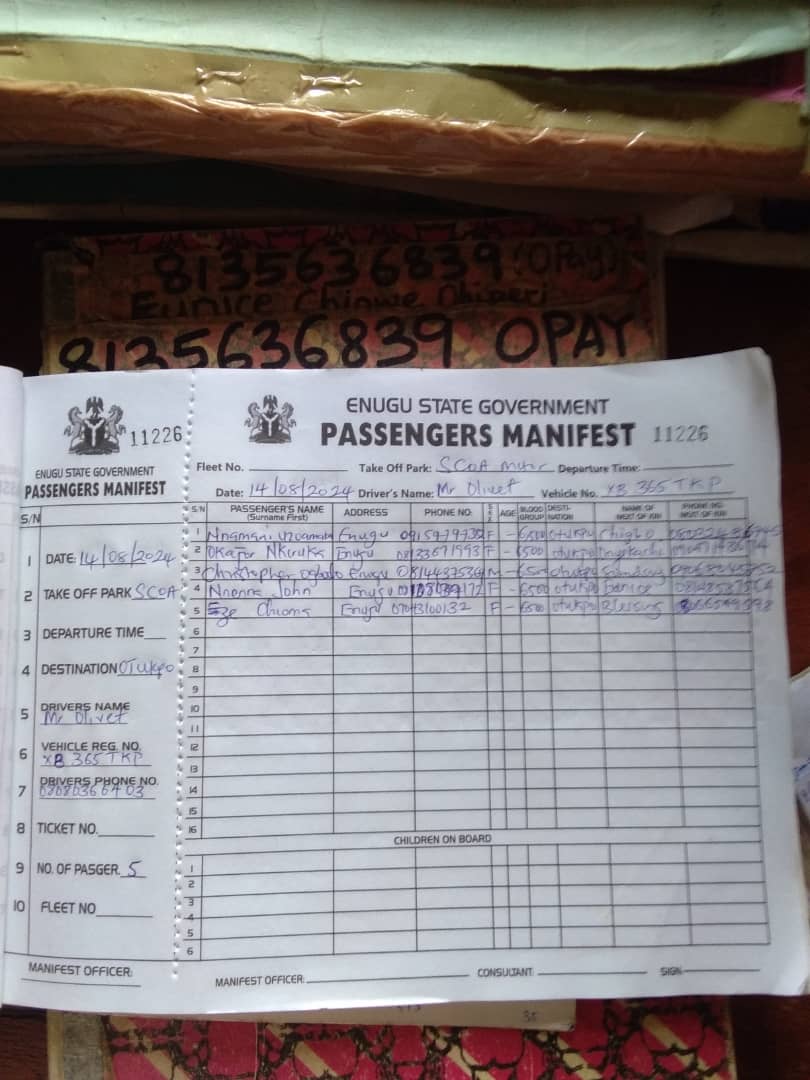 8135636839 (OPay)
Eunice Chinwe
8135636839 OPAY
11226
ENUGU STATE GOVERNMENT
PASSENGERS MANIFEST
S/N
1 DATE: 14/08/2024
2 TAKE OFF PARK SCOA
3 DEPARTURE TIME
4 DESTINATION OTukpo
5 DRIVERS NAME
Mr Olivet
6 VEHICLE REG. NO.
XB 365 TKP
7 DRIVERS PHONE NO.
8 TICKET NO.
9 NO. OF PASGER. 5
10 FLEET NO
MANIFEST OFFICER:
ENUGU STATE GOVERNMENT
PASSENGERS MANIFEST 11226
Fleet No. Take Off Park: SCOA Departure Time:
Date: 14/08/2024 Driver's Name: Mr Olivet Vehicle No. XB 365 TKP
S/N PASSENGER'S NAME (Surname First) ADDRESS PHONE NO. SEX AGE BLOOD GROUP DESTI-NATION NAME OF NEXT OF KIN PHONE NO. NEXT OF KIN
1 Nnamani Enugu F - 6500 otukpo
2 Okafor Nkiruka Enugu F - 6500 otukpo
3 Christopher Ogbabo Enugu M - otukpo Sunday
4 Nnenna John Enugu F - 6500 otukpo
5 Eze Chioma Enugu F - 6500 otukpo Blessing
6
7
8
9
10
11
12
13
14
15
16
CHILDREN ON BOARD
1
2
3
4
5
6
MANIFEST OFFICER: CONSULTANT: SIGN